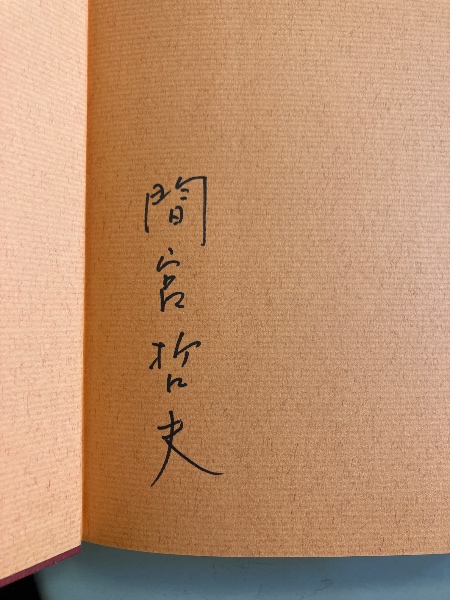 間宮哲夫